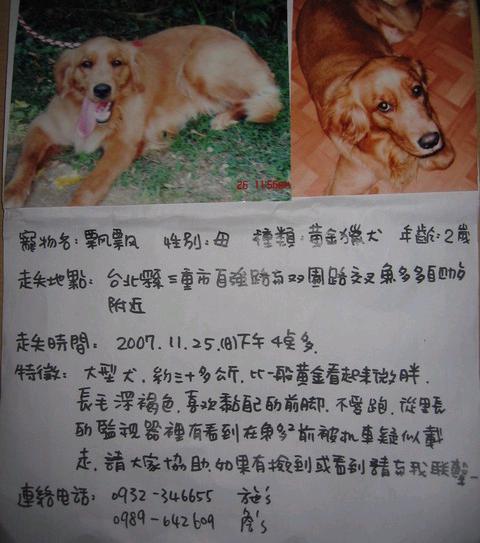 26 11:56
寵物名：飄飄 性別：母 種類：黃金獵犬 年齡：2歲
走失地點：台北縣三重市自強路與双園路交叉魚多多自助
附近
走失時間：2007.11.25.(日)下午4點多.
特徵：大型犬，約三十多公斤，比一般黃金看起來微胖，
長毛深褐色，喜欢黏配的前脚，不愛跑，從里長
的監視器裡有看到在魚多多前被机車疑似載
走，請大家協助，如果有撿到或看到請与我联繫。
連絡电話：0932-346655 施's
0989-642609 詹's